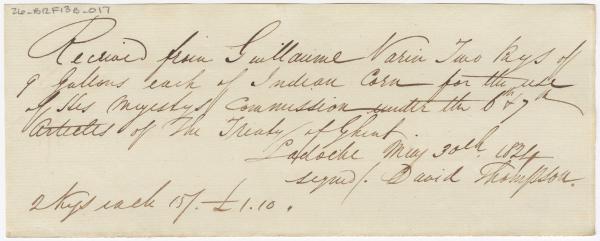 26-BRF13B-017
Received from Guillaume Narin Two Kegs of
9 Gallons each of Indian Corn for the use
of His Majestys Commission under the 6th & 7th
Articles of The Treaty of Ghent.
Ladoche May 30th 1824
signed/. David Thompson.
2 Kegs each 15/. £1.10.